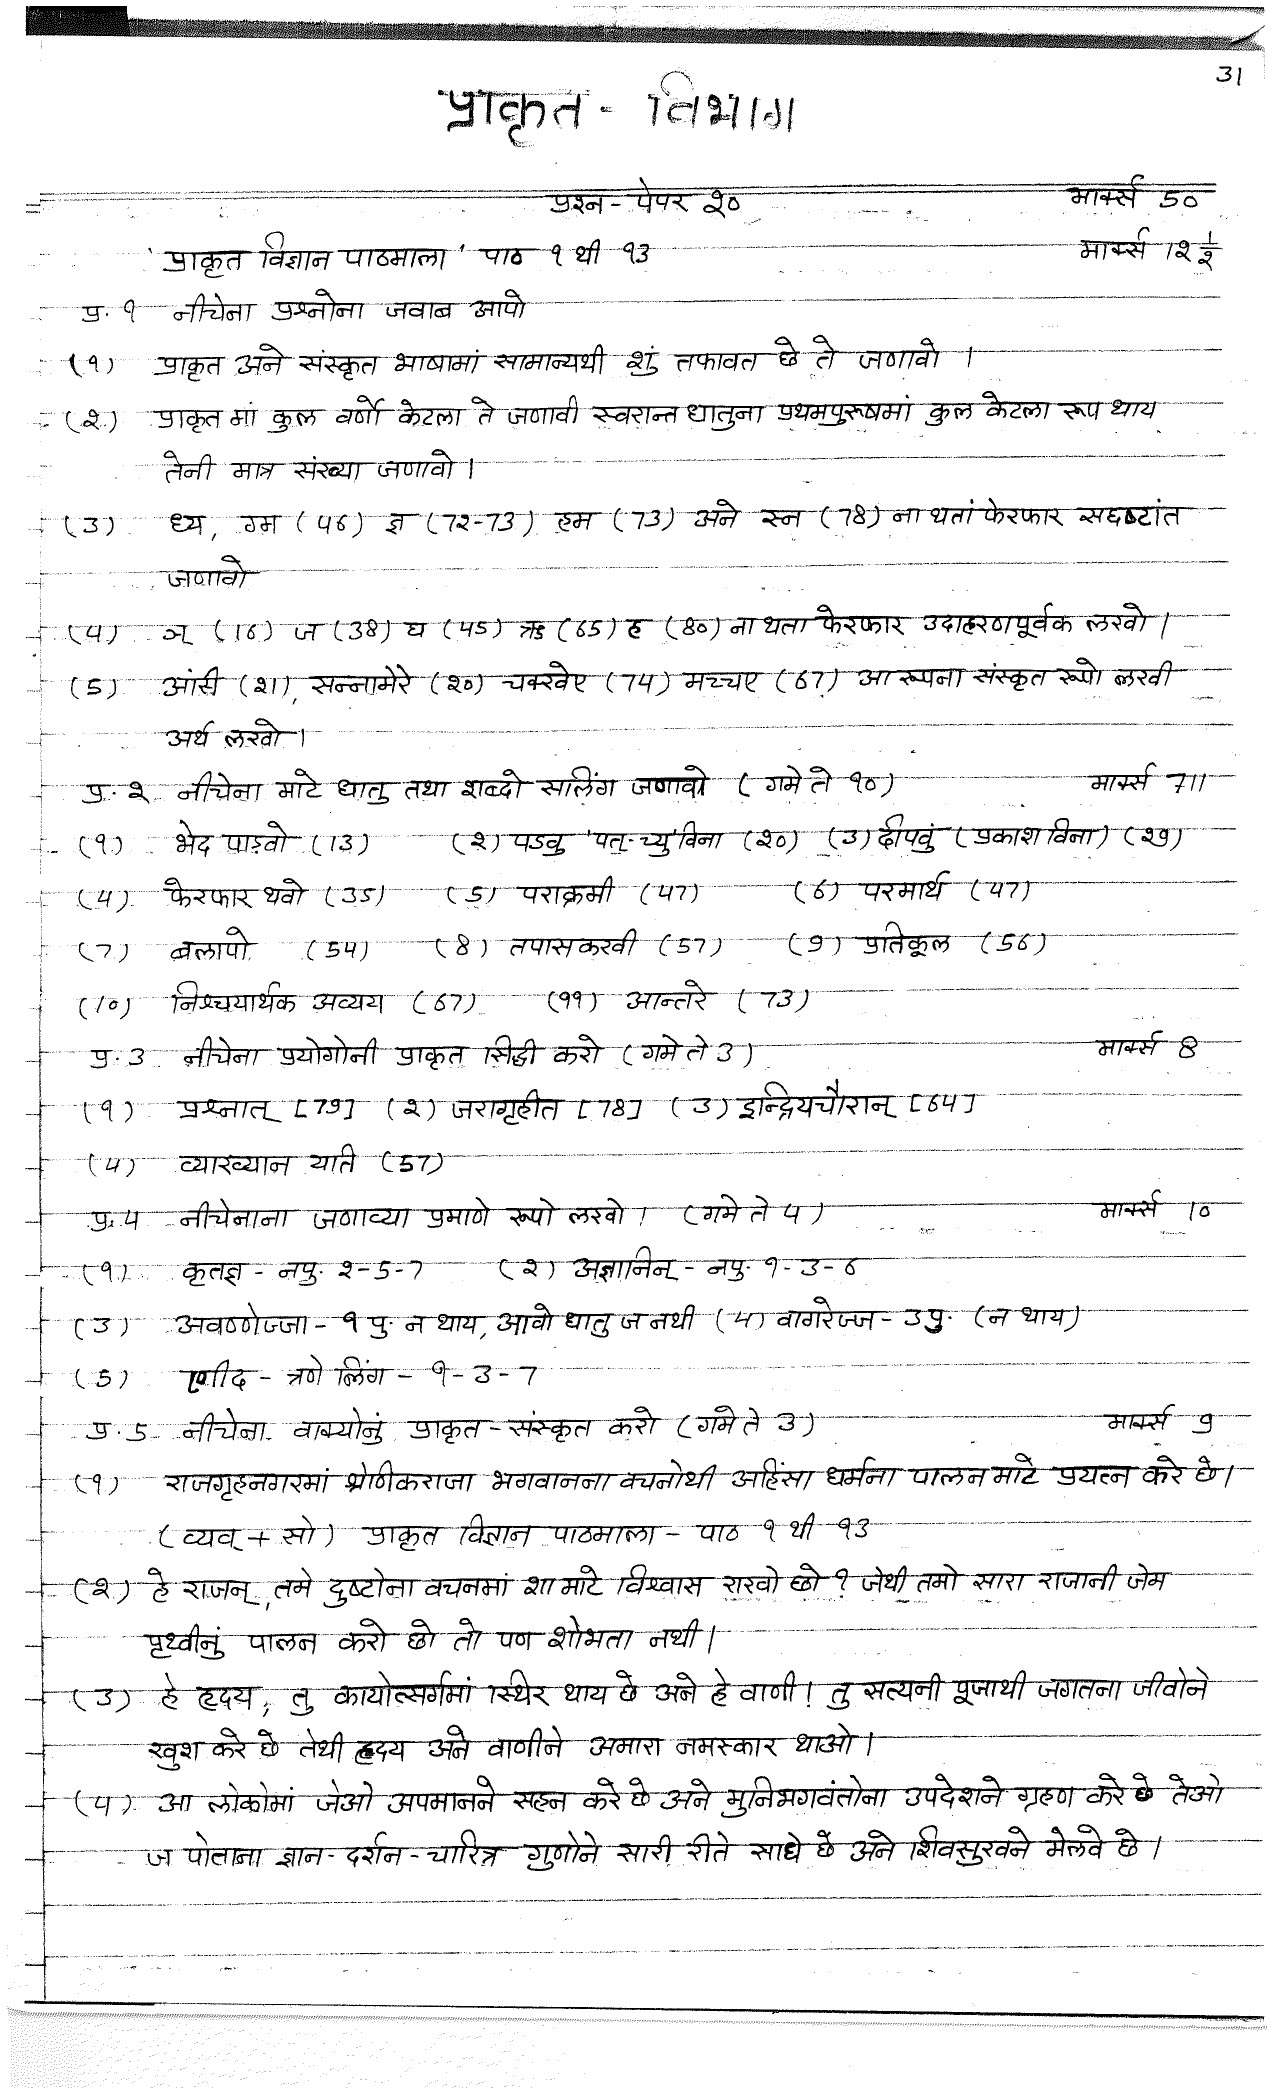 31
प्राकृत - विभाग
प्रश्न - पेपर २० मार्क्स 50
'प्राकृत विज्ञान पाठमाला' पाठ १ थी १3 मार्क्स 1२ १/२
प्र. १ नीचेना प्रश्नोना जवाब आपो
(१) प्राकृत अने संस्कृत भाषामां सामान्यथी शुं तफावत छे ते जणावो ।
(२) प्राकृत मां कुल वर्णो केटला ते जणावी स्वरान्त धातुना प्रथमपुरूषमां कुल केटला रूप थाय
तेनी मात्र संख्या जणावो ।
(3) ध्य, ग्म (५6) ज्ञ (7२-73) ह्म (73) अने स्न (78) ना थतां फेरफार सद्दष्टांत
जणावो
(५) ञ् (16) ज (38) घ (45) ऋ (65) ह (80) ना थता फेरफार उदाहरणपूर्वक लखो ।
(5) आंसी (२1), सन्नामेरे (२०) चक्खेए (74) मच्चए (67) आ रूपना संस्कृत रूपो लखी
अर्थ लखो ।
प्र. २ नीचेना माटे धातु तथा शब्दो सलिंग जणावो (गमे ते १०) मार्क्स 7॥
(१) भेद पाडवो (13) (२) पडवु 'पत्-च्यु' विना (२०) (3) दीपवुं (प्रकाश विना) (२9)
(५) फेरफार थवो (35) (5) पराक्रमी (५7) (6) परमार्थ (५7)
(7) बलापो (5५) (8) तपास करवी (57) (9) प्रतिकूल (56)
(10) निश्चयार्थक अव्यय (67) (११) आन्तरे (73)
प्र. 3 नीचेना प्रयोगोनी प्राकृत सिद्धी करो (गमे ते 3) मार्क्स 8
(१) प्रश्नात् [79] (२) जरागृहीत [78] (3) इन्द्रियचौरान् [6५]
(५) व्याख्यान याति (57)
प्र. ५ नीचेनाना जणाव्या प्रमाणे रूपो लखो । (गमे ते ५) मार्क्स 10
(१) कृतज्ञ - नपु. २-5-7 (२) अज्ञानिन् - नपु. १-3-6
(3) अवण्णेज्जा - १ पु. न थाय, आवो धातु ज नथी (५) वागरेज्ज - 3 पु. (न थाय)
(5) णीद - त्रणे लिंग - १-3-7
प्र. 5 नीचेना वाक्योनुं प्राकृत - संस्कृत करो (गमे ते 3) मार्क्स 9
(१) राजगृहनगरमां श्रेणीकराजा भगवानना वचनोथी अहिंसा धर्मना पालन माटे प्रयत्न करे छे ।
(व्यव् + सो) प्राकृत विज्ञान पाठमाला - पाठ १ थी १3
(२) हे राजन्, तमे दुष्टोना वचनमां शा माटे विश्वास राखो छो ? जेथी तमो सारा राजानी जेम
पृथ्वीनुं पालन करो छो तो पण शोभता नथी ।
(3) हे हृदय, तु कायोत्सर्गमां स्थिर थाय छे अने हे वाणी ! तु सत्यनी पूजाथी जगतना जीवोने
खुश करे छे तेथी हृदय अने वाणीने अमारा नमस्कार थाओ ।
(५) आ लोकोमां जेओ अपमानने सहन करे छे अने मुनिभगवंतोना उपदेशने ग्रहण करे छे तेओ
ज पोताना ज्ञान - दर्शन - चारित्र गुणोने सारी रीते साधे छे अने शिवसुखने मेलवे छे ।